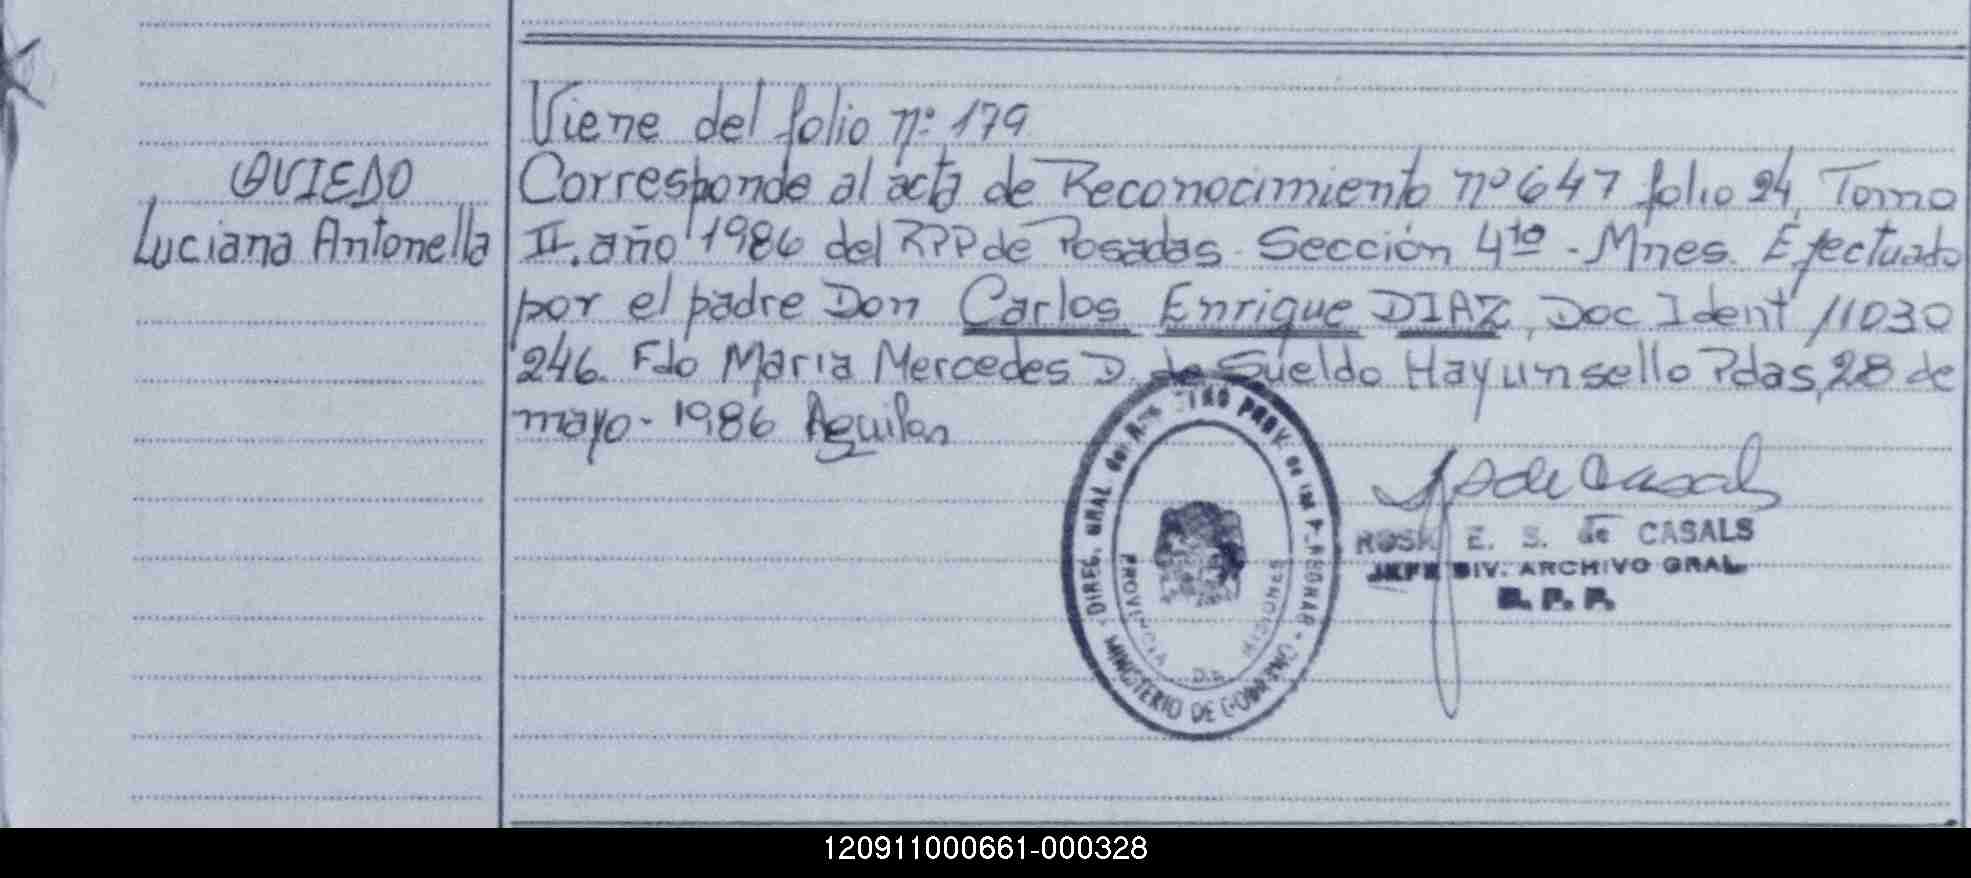 Viene del folio nº 179
OVIEDO
Luciana Antonella
Corresponde al acta de Reconocimiento nº 647 folio 24, Tomo
II. año 1986 del RPP de Posadas - Sección 4ta - Mnes. Efectuado
por el padre Don Carlos Enrique DIAZ, Doc Ident 11030
246. Fdo Maria Mercedes D. de Sueldo Hay un sello Pdas, 28 de
mayo - 1986 Aguilar
DIREC. GRAL del PROV. de las PERSONAS - MINISTERIO DE GOBIERNO
PROVINCIA DE MISIONES
de Casals
ROSA E. S. de CASALS
JEFE DIV. ARCHIVO GRAL.
R. P. P.
120911000661-000328